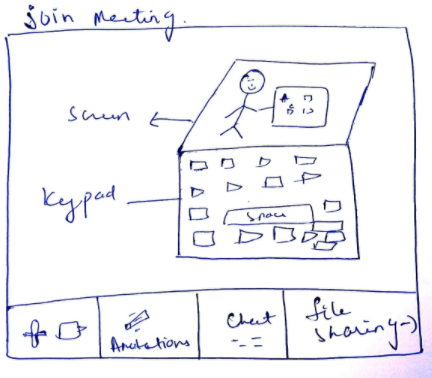 join Meeting.
Screen
Keypad
Space
Anotations
Chat
file
sharing